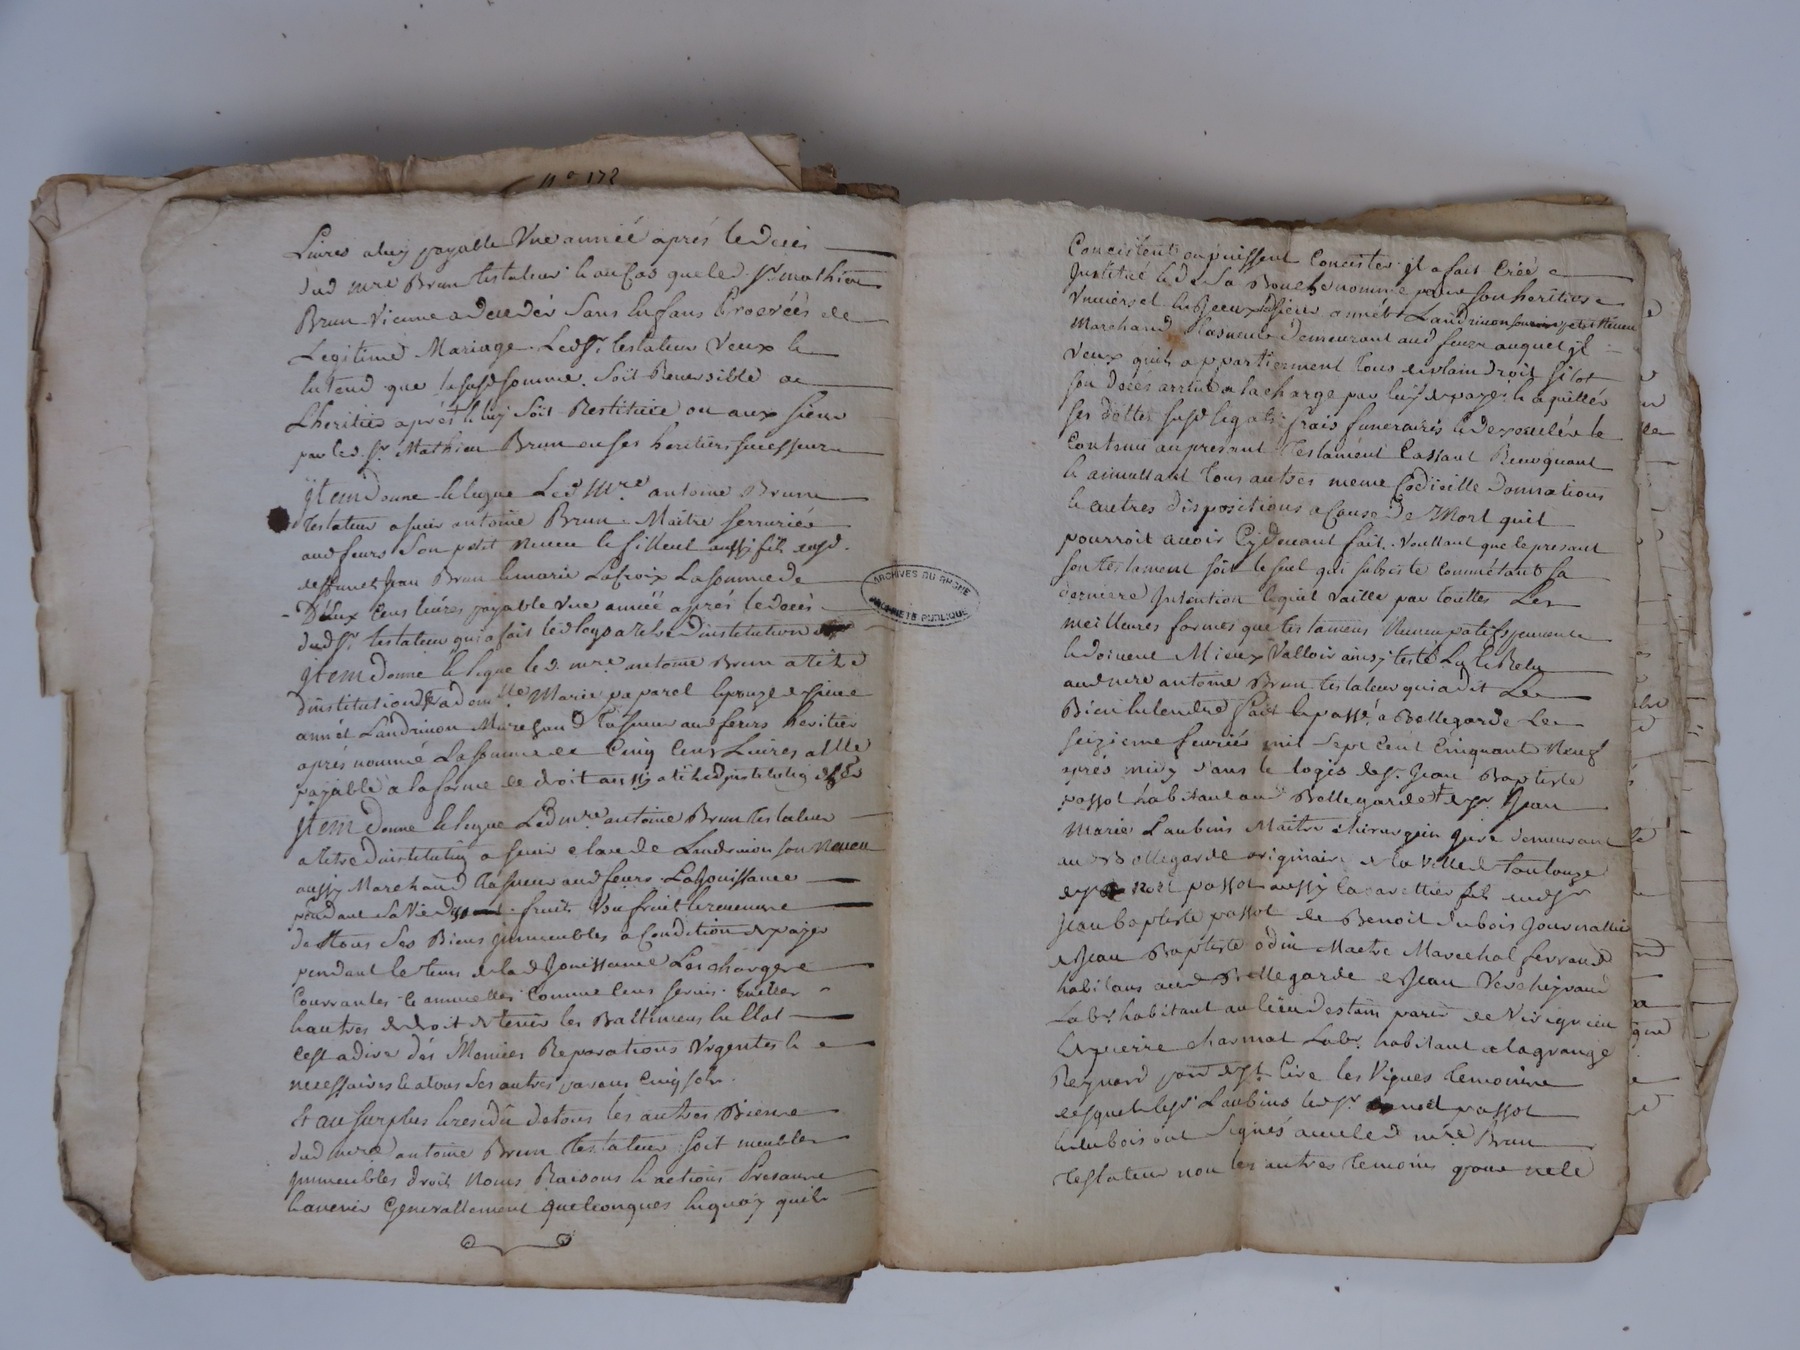 n° 172
Livres a luy payable Une année aprés le decés
dud mre Brun testateur & au Cas que led. sr. mathieu
Brun Vienne a decedér Sans Enfans Procréés de
Legitime Mariage. Led sr. testateur Veux &
Entend que la susd somme. Soit Reversible a
L'heritier aprés Luy Soit Restituée ou aux siens
par led. sr. Mathieu Brun ou ses heritiers successeurs
jtem Donne & legue Led Mre antoine Brun
testateur a sieur antoine Brun Maitre serruriér
aud feurs Son petit neveu & filleul aussy fils ausd.
deffunet Jean Brun & marie Lacroix La somme de
Deux Cens livres payable Une année aprés le decés
dud sr. testateur qui a fait led legs a titre d'institution
jtem Donne & legue led. mre antoine Brun a titre
d'institution a demlle Marie paparel epouze de sieur
annét Landrinon Marchand Tasneur aud feurs heritier
aprés nommé La somme de Cinq Cens Livres a Elle
payable a la forme de droit aussy a titre d'institution
jtem Donne & legue Led mre antoine Brun testateur
a titre d'institution a sieur Claude Landrinon son neveu
aussy Marchand Tasneur aud feurs. La Jouissance
pendant sa Vie des fruits Usufruit & revenus
de tous Ses Biens immeubles a Condition de payer
pendant le tems de lad Jouissance Les charges
Courrantes & annuelles Comme Cens servis. tailles
& autres de droit de tenir les Battimens En Etat
C'est a dire dés Menües Reparations Urgentes &
necessaires & a tous ses autres parans Cinq sols.
Et au surplus & residu de tous les autres Biens
dud mre antoine Brun testateur soit meubles
immeubles droit Noms Raisons & actions Presans
& avenir Generallement quelconques En quoy qu'ils
Concistent ou puissent Concister il a fait Créé
Institué & de Sa Bouche nommé pour son heritier
Universel sieur annét Landrinon son petit Neveu
Marchand Tasneur Demeurant aud feurs auquel jl
Veux qu'ils appartiennent tous de plain droit sitot
son decés arrivé a la charge par luy de payer & aquittér
ses dettes susd legats frais funeraires & d'executér le
Contenu au present testament Cassant Revoquant
& annullant tous autres meme Codicille Donnations
& autres dispositions a Cause de Mort qu'il
pourroit avoir Cy devant fait. Voullant que le present
son testament soit le seul qui subsiste Comme étant sa
derniere Intention & qu'il vaille par touttes Les
meilleures formes que testamens
& doivent Mieux Valloir ainsy testé Lu & Relu
aud mre antoine Brun testateur qui a dit Le
Bien Entendre fait & passé a Bellegarde Le
seizieme fevriér mil sept Cent Cinquante Neuf
aprés midy dans le logis de sr. Jean Baptiste
passot habitant aud Bellegarde & sr. Jean
Marie Laubins Maitre chirurgien juré demeurant
au d Bellegarde originaire de la Ville de toulouze
de sr noél passot aussy Cabarettier fils dud sr
Jean baptiste passot de Benoit dubois Journallier
de Jean Baptiste odin Maetre Marechal ferrand
habitans aud Bellegarde de Jean Verchyrand
Labr. habitant au lieu destain parse de Virigneu
& pierre charmat Labr. habitant a la grange
Reynard parse de st. Cire les Vignes temoins
desquels led sr. Laubins led sr. noél passot
& dubois ont signés avec led mre Brun
Testateur non les autres temoins pour ne le
ARCHIVES DU RHONE
PROPRIETE PUBLIQUE